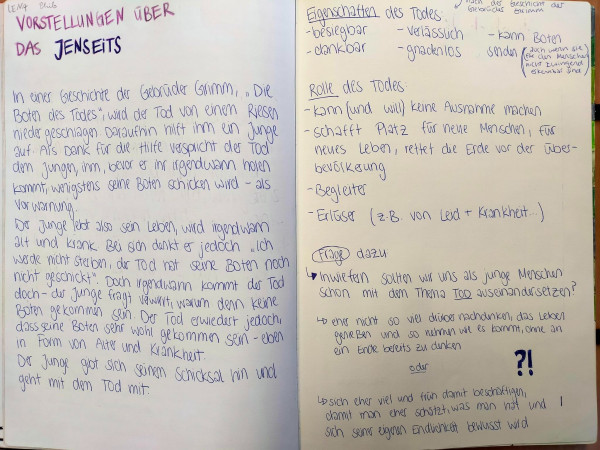 LENA
VORSTELLUNGEN ÜBER
DAS JENSEITS
In einer Geschichte der Gebrüder Grimm, „Die
Boten des Todes", wird der Tod von einem Riesen
niedergeschlagen. Daraufhin hilft ihm ein Junge
auf. Als Dank für die Hilfe verspricht der Tod
dem Jungen, ihm, bevor er ihn irgendwann holen
kommt, wenigstens seine Boten schicken wird - als
Vorwarnung.
Der Junge lebt also sein Leben, wird irgendwann
alt und krank. Bei sich denkt er jedoch „Ich
werde nicht sterben, der Tod hat seine Boten noch
nicht geschickt". Doch irgendwann kommt der Tod
doch - der Junge fragt verwirrt, warum denn keine
Boten gekommen sein. Der Tod erwiedert jedoch,
dass seine Boten sehr wohl gekommen sein - eben
in Form von Alter und Krankheit.
Der Junge gibt sich seinem Schicksal hin und
geht mit dem Tod mit.
nach der Geschichte der
Gebrüder Grimm
Eigenschaften des Todes:
- besiegbar - verlässlich - kann Boten
- dankbar - gnadenlos senden (auch wenn sie
für den Menschen
nicht zwingend
erkennbar sind)
Rolle des Todes:
- kann (und will) keine Ausnahme machen
- schafft Platz für neue Menschen, für
neues Leben, rettet die Erde vor der Über-
bevölkerung
- Begleiter
- Erlöser (z.B. von Leid + Krankheit...)
Frage dazu
↳ Inwiefern sollten wir uns als junge Menschen
schon mit dem Thema TOD auseinandersetzen?
↳ eher nicht so viel drüber nachdenken, das Leben
genießen und so nehmen wie es kommt, ohne an
ein Ende bereits zu denken
oder
?!
↳ sich eher viel und früh damit beschäftigen,
damit man eher schätzt, was man hat und
sich seiner eigenen Endlichkeit bewusst wird